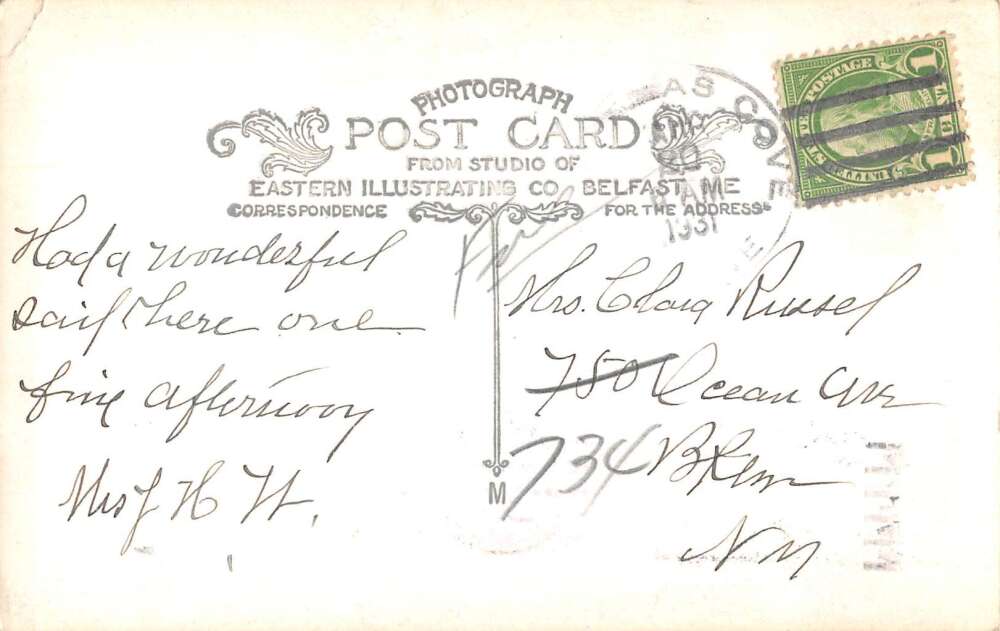 PHOTOGRAPH
POST CARD
FROM STUDIO OF
EASTERN ILLUSTRATING CO. BELFAST, ME
CORRESPONDENCE
FOR THE ADDRESS
AS COVE
20
AM
1931
POSTAGE
1 1
Had a wonderful
sail here one
fine afternoon
Mrs J H H.
Mrs. Clara Russel
750 Ocean Ave
734
Bklyn
N Y
M